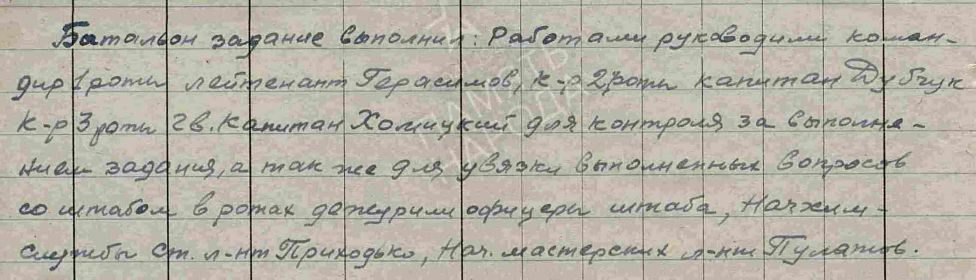 Батальон задание выполнил: Работами руководили коман-
дир 1 роты лейтенант Герасимов, к-р 2 роты капитан Дубчук
к-р 3 роты гв. капитан Хомицкий для контроля за выполне-
нием задания, а так же для увязки выполненных вопросов
со штабом в ротах дежурили офицеры штаба, Начхим-
службы Ст. л-нт Приходько, Нач. мастерских л-нт Пулатов.
ПАМЯТЬ
НАРОДА